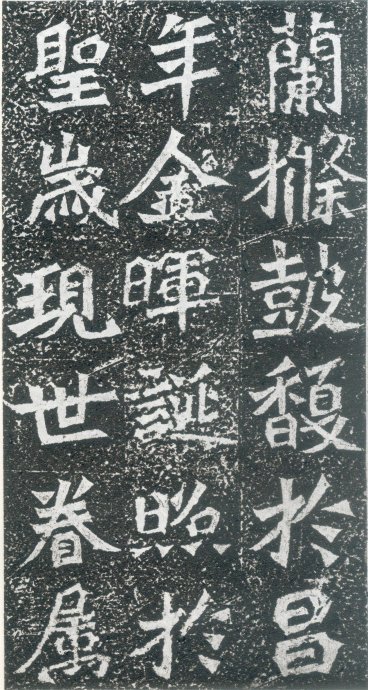 蘭條皷馥於昌
年金暉誕照於
聖歲現世眷属